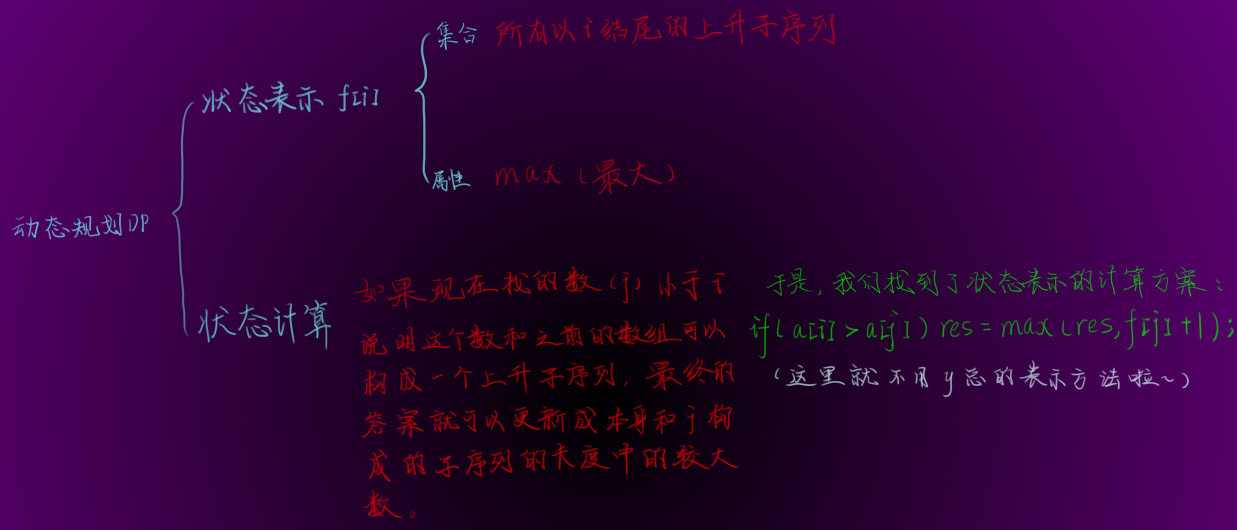 集合 所有以i结尾的上升子序列
状态表示 f[i]
属性 max (最大)
动态规划DP
状态计算
如果现在找的数(j)小于i
说明这个数和之前的数组可以
构成一个上升子序列,最终的
答案就可以更新成本身和j构
成的子序列的长度中的较大
数。
于是,我们找到了状态表示的计算方案:
if(a[i]>a[j]) res=max(res,f[j]+1);
(这里就不用y总的表示方法啦~)